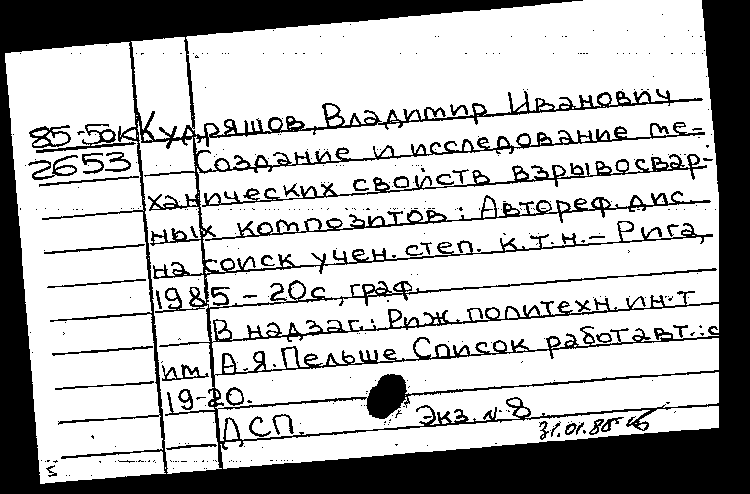 85-50к Кудряшов, Владимир Иванович
2653 Создание и исследование ме=
ханических свойств взрывосвар-
ных композитов : Автореф. дис.
на соиск учен. степ. к.т.н. – Рига,
1985. – 20с, граф.
В надзаг.: Риж. политехн. ин-т
им. А.Я. Пельше. Список работ авт.: с
19-20.
ДСП. Экз. № 8.
31.01.86